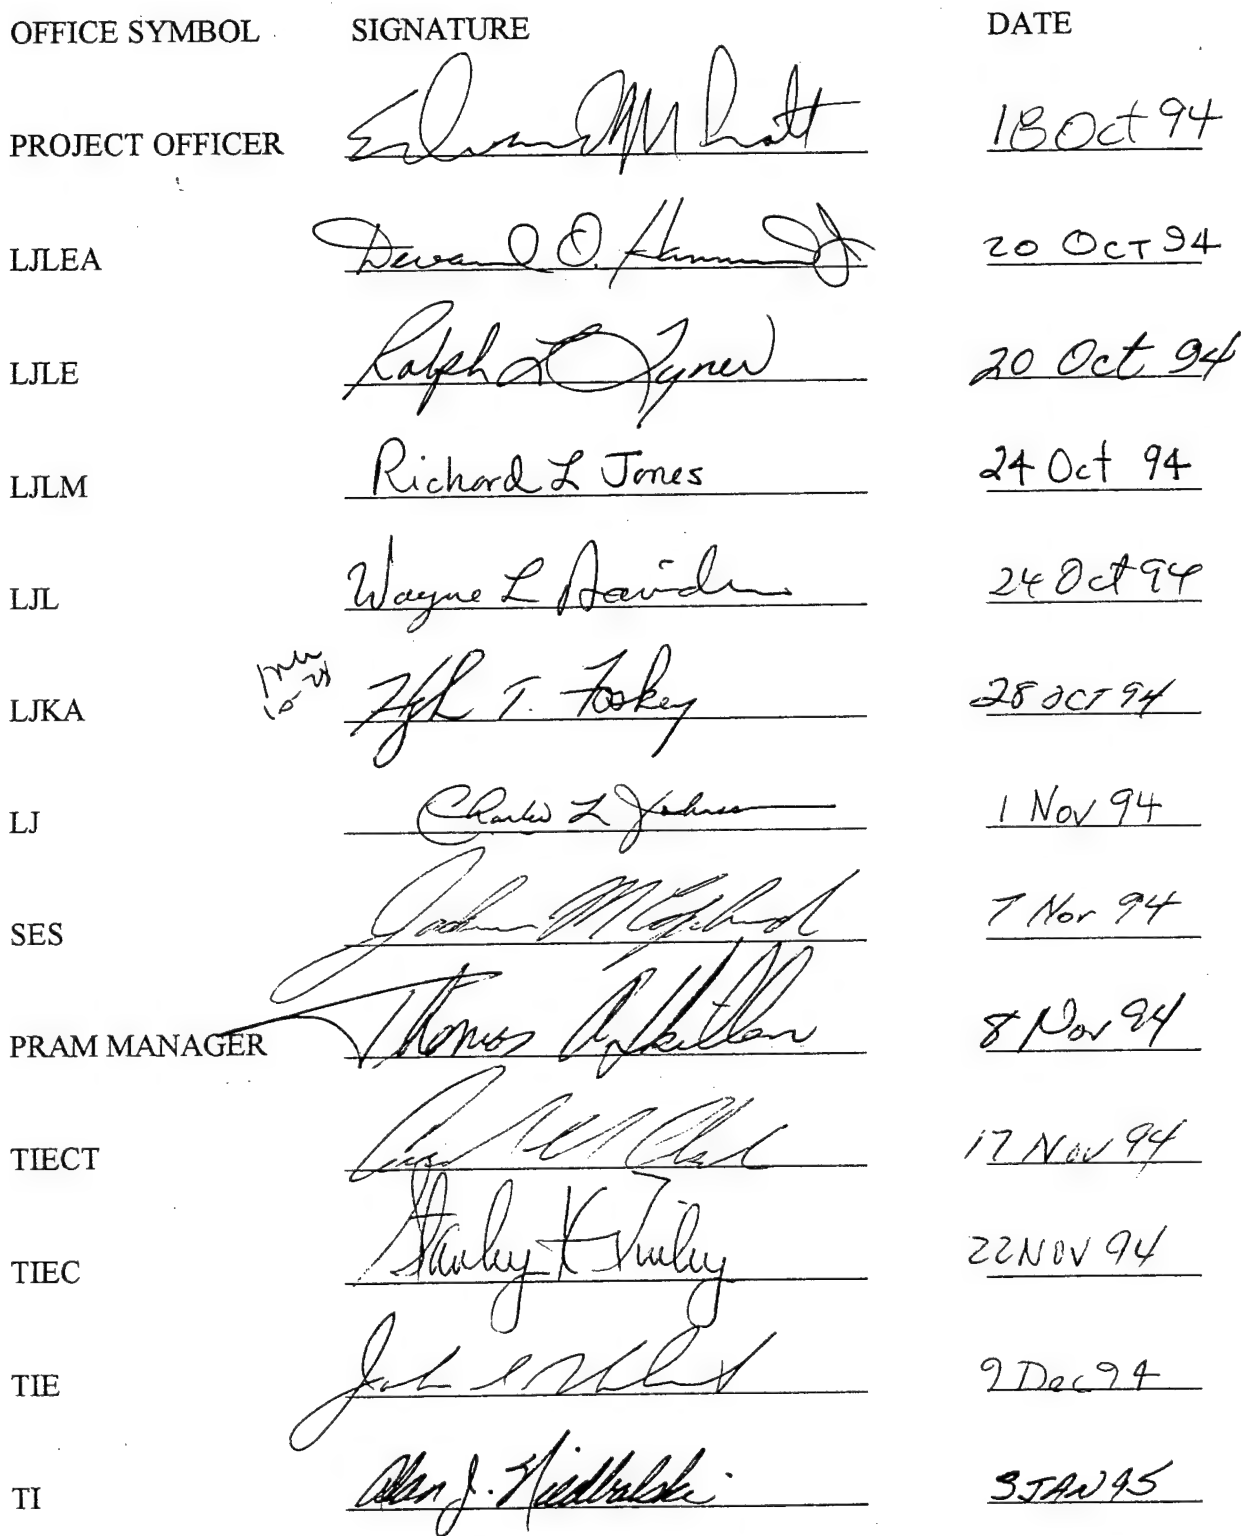 OFFICE SYMBOL SIGNATURE DATE
PROJECT OFFICER 18 Oct 94
LJLEA O. 20 OCT 94
LJLE Ralph L Tyner 20 Oct 94
LJLM Richard L Jones 24 Oct 94
LJL Wayne L 24 Oct 94
10-28
LJKA T. Foskey 28 OCT 94
LJ Charles L Johnson 1 Nov 94
SES 7 Nov 94
PRAM MANAGER Thomas 8 Nov 94
TIECT 17 Nov 94
TIEC Stanley K 22 NOV 94
TIE John 9 Dec 94
TI Alan J. Niedbalski 3 JAN 95